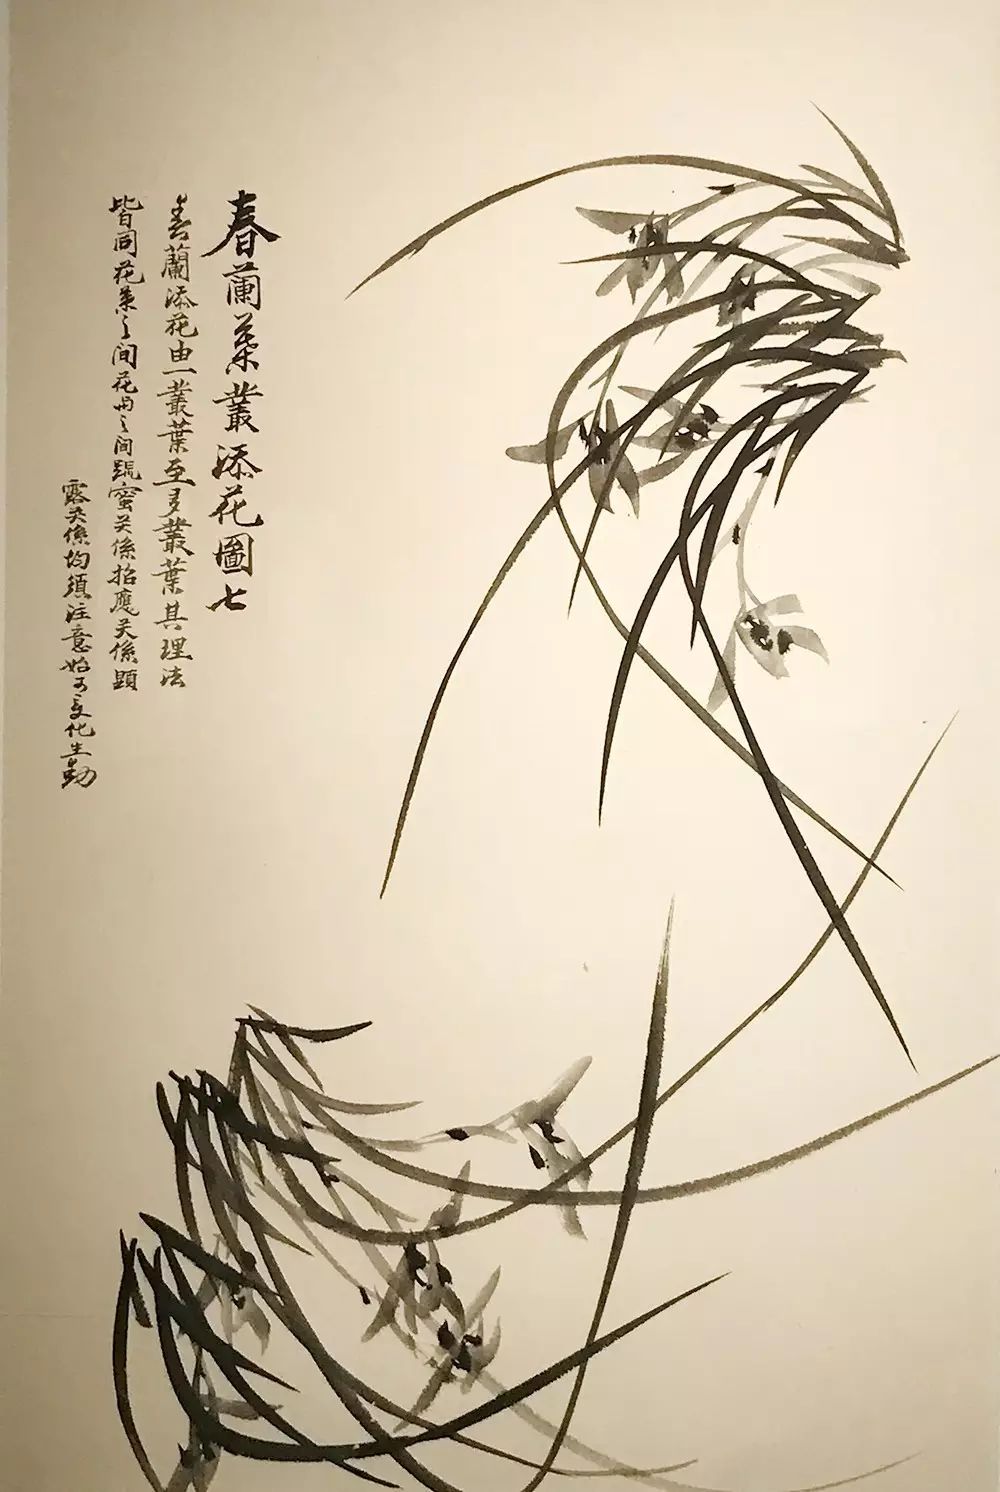 春蘭葉叢添花圖七
春蘭添花由一叢葉至多叢葉其理法
皆同花葉之间花之间疎蜜关係招應关係顕
露关係均須注意始可变化生動